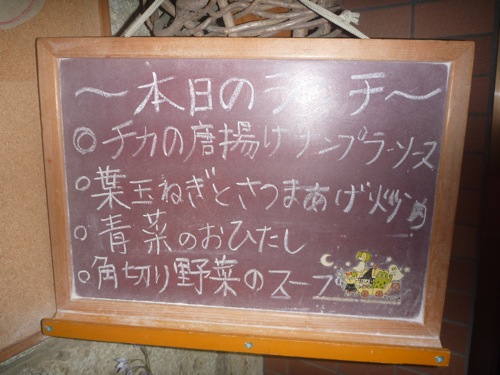 〜本日のランチ〜
○チカの唐揚げナンプラーソース
○葉玉ねぎとさつまあげ炒め
○青菜のおひたし
○角切り野菜のスープ